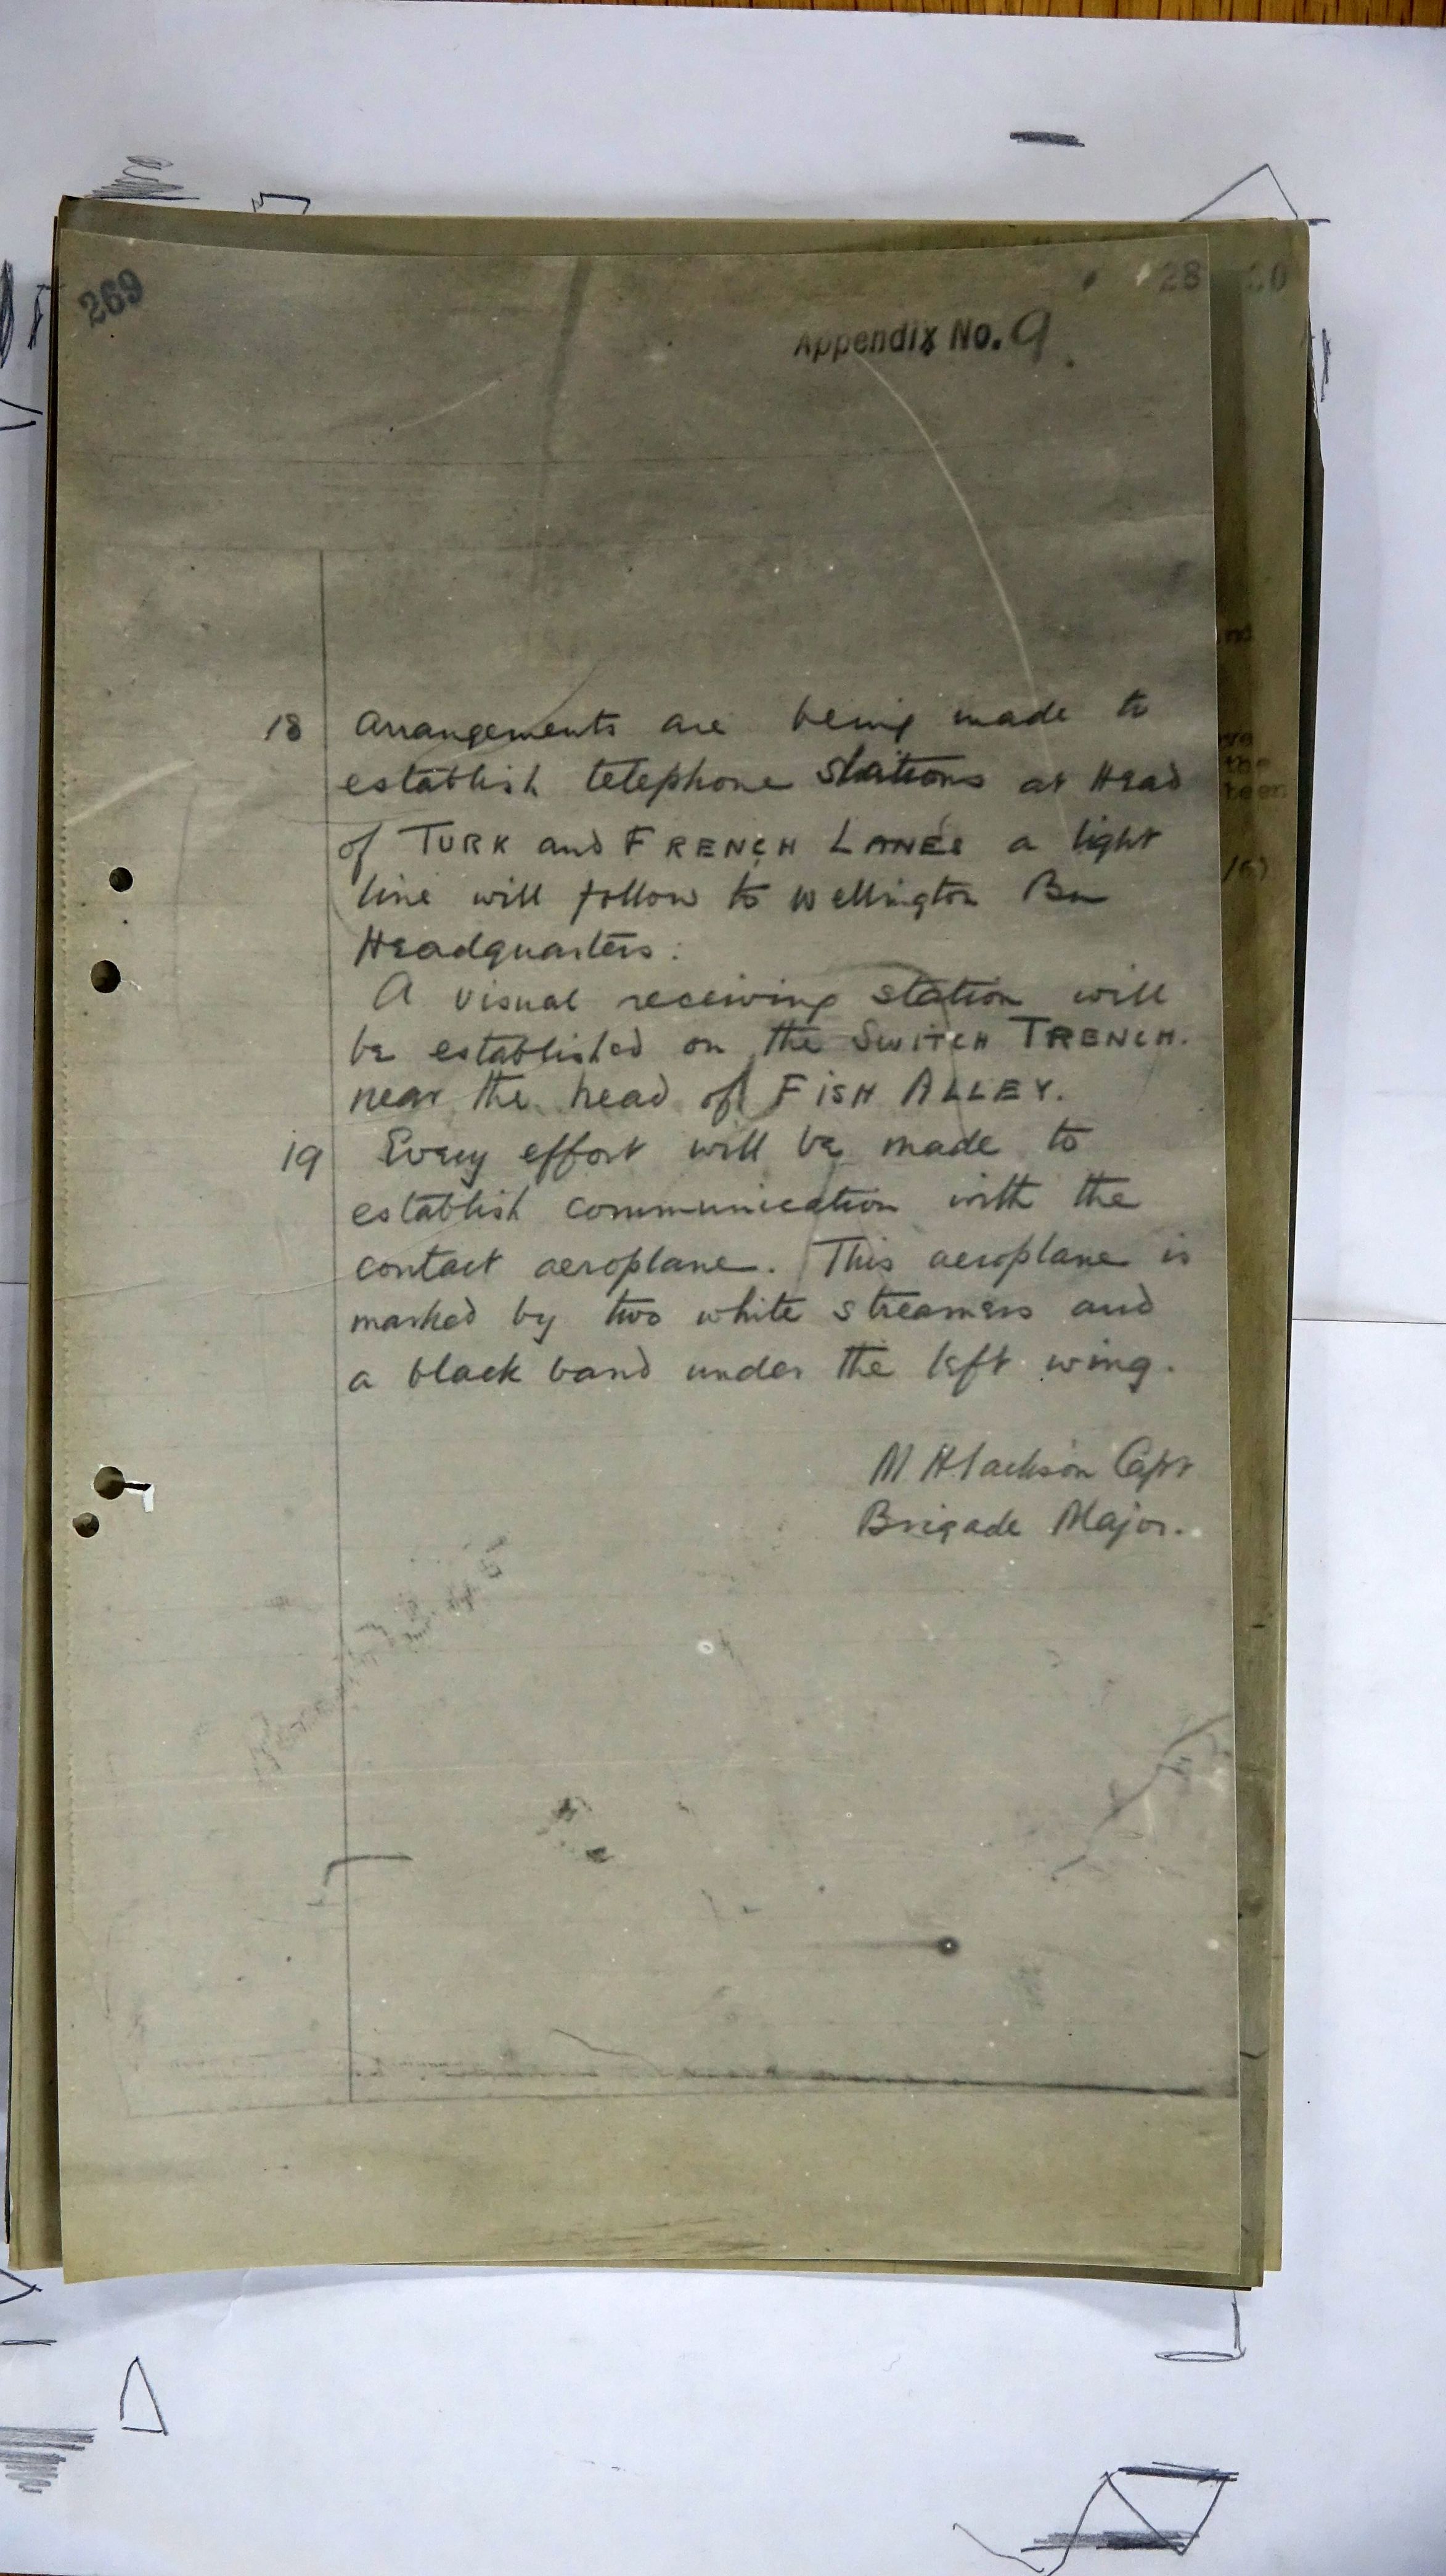 269
28 20
Appendix No. 9
18 Arrangements are being made to
establish telephone stations at Head
of TURK and FRENCH LANES a light
line will follow to Wellington Bn
Headquarters.
A visual receiving station will
be established on the SWITCH TRENCH.
near the head of FISH ALLEY.
19 Every effort will be made to
establish communication with the
contact aeroplane. This aeroplane is
marked by two white streamers and
a black band under the left wing.
M H Jackson Capt
Brigade Major.